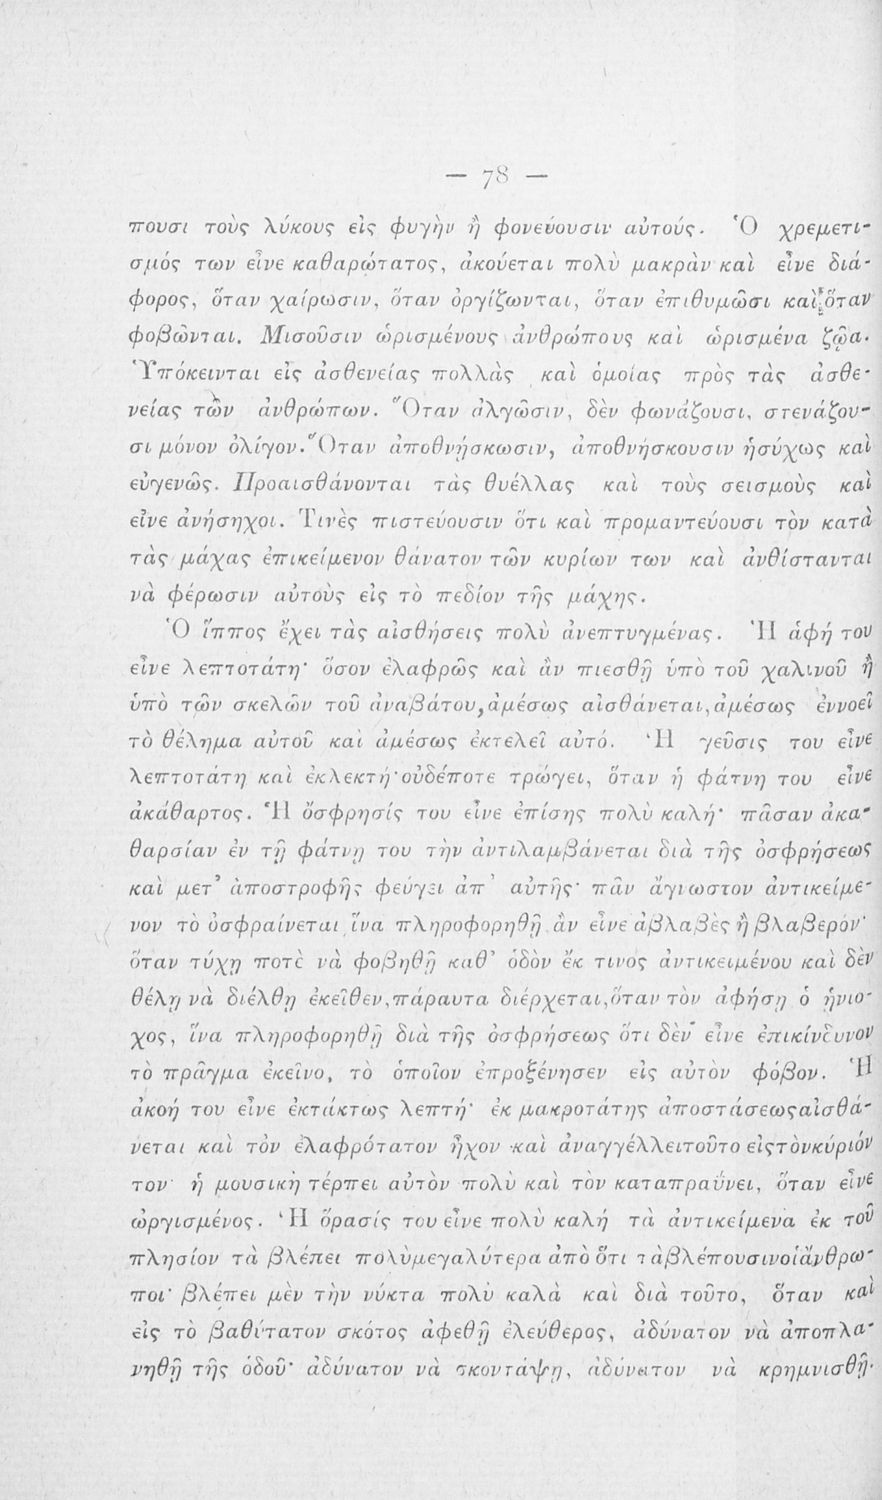 — 78 —
πουσι τοὺς λύκους εἰς φυγὴν ἢ φονεύουσιν αὐτούς. Ὁ χρεμετι-
σμός των εἶνε καθαρώτατος, ἀκούεται πολὺ μακρὰν καὶ εἶνε διά-
φορος, ὅταν χαίρωσιν, ὅταν ὀργίζωνται, ὅταν ἐπιθυμῶσι καὶ ὅταν
φοβῶνται. Μισοῦσιν ὡρισμένους ἀνθρώπους καὶ ὡρισμένα ζῷα.
Ὑπόκεινται εἰς ἀσθενείας πολλὰς καὶ ὁμοίας πρὸς τὰς ἀσθε-
νείας τῶν ἀνθρώπων. Ὅταν ἀλγῶσιν, δὲν φωνάζουσι, στενάζου-
σι μόνον ὀλίγον. Ὅταν ἀποθνήσκωσιν, ἀποθνήσκουσιν ἡσύχως καὶ
εὐγενῶς. Προαισθάνονται τὰς θυέλλας καὶ τοὺς σεισμοὺς καὶ
εἶνε ἀνήσηχοι. Τινὲς πιστεύουσιν ὅτι καὶ προμαντεύουσι τὸν κατὰ
τὰς μάχας ἐπικείμενον θάνατον τῶν κυρίων των καὶ ἀνθίστανται
νὰ φέρωσιν αὐτοὺς εἰς τὸ πεδίον τῆς μάχης.
Ὁ ἵππος ἔχει τὰς αἰσθήσεις πολὺ ἀνεπτυγμένας. Ἡ ἁφή του
εἶνε λεπτοτάτη· ὅσον ἐλαφρῶς καὶ ἂν πιεσθῇ ὑπὸ τοῦ χαλινοῦ ἢ
ὑπὸ τῶν σκελῶν τοῦ ἀναβάτου, ἀμέσως αἰσθάνεται, ἀμέσως ἐννοεῖ
τὸ θέλημα αὐτοῦ καὶ ἀμέσως ἐκτελεῖ αὐτό. Ἡ γεῦσις του εἶνε
λεπτοτάτη καὶ ἐκλεκτή· οὐδέποτε τρώγει, ὅταν ἡ φάτνη του εἶνε
ἀκάθαρτος. Ἡ ὄσφρησίς του εἶνε ἐπίσης πολὺ καλή· πᾶσαν ἀκα-
θαρσίαν ἐν τῇ φάτνῃ του τὴν ἀντιλαμβάνεται διὰ τῆς ὀσφρήσεως
καὶ μετ’ ἀποστροφῆς φεύγει ἀπ’ αὐτῆς· πᾶν ἄγνωστον ἀντικείμε-
νον τὸ ὀσφραίνεται ἵνα πληροφορηθῇ ἂν εἶνε ἀβλαβὲς ἢ βλαβερόν·
ὅταν τύχῃ ποτὲ νὰ φοβηθῇ καθ’ ὁδὸν ἔκ τινος ἀντικειμένου καὶ δὲν
θέλῃ νὰ διέλθῃ ἐκεῖθεν, πάραυτα διέρχεται, ὅταν τὸν ἀφήσῃ ὁ ἡνιο-
χος, ἵνα πληροφορηθῇ διὰ τῆς ὀσφρήσεως ὅτι δὲν εἶνε ἐπικίνδυνον
τὸ πρᾶγμα ἐκεῖνο, τὸ ὁποῖον ἐπροξένησεν εἰς αὐτὸν φόβον. Ἡ
ἀκοή του εἶνε ἐκτάκτως λεπτή· ἐκ μακροτάτης ἀποστάσεως αἰσθά-
νεται καὶ τὸν ἐλαφρότατον ἦχον καὶ ἀναγγέλλει τοῦτο εἰς τὸν κύριόν
του· ἡ μουσικὴ τέρπει αὐτὸν πολὺ καὶ τὸν καταπραΰνει, ὅταν εἶνε
ὠργισμένος. Ἡ ὅρασίς του εἶνε πολὺ καλή τὰ ἀντικείμενα ἐκ τοῦ
πλησίον τὰ βλέπει πολὺ μεγαλύτερα ἀπὸ ὅτι τὰ βλέπουσιν οἱ ἄνθρω-
ποι· βλέπει μὲν τὴν νύκτα πολὺ καλὰ καὶ διὰ τοῦτο, ὅταν καὶ
εἰς τὸ βαθύτατον σκότος ἀφεθῇ ἐλεύθερος, ἀδύνατον νὰ ἀποπλα-
νηθῇ τῆς ὁδοῦ· ἀδύνατον νὰ σκοντάψῃ, ἀδύνατον νὰ κρημνισθῇ.